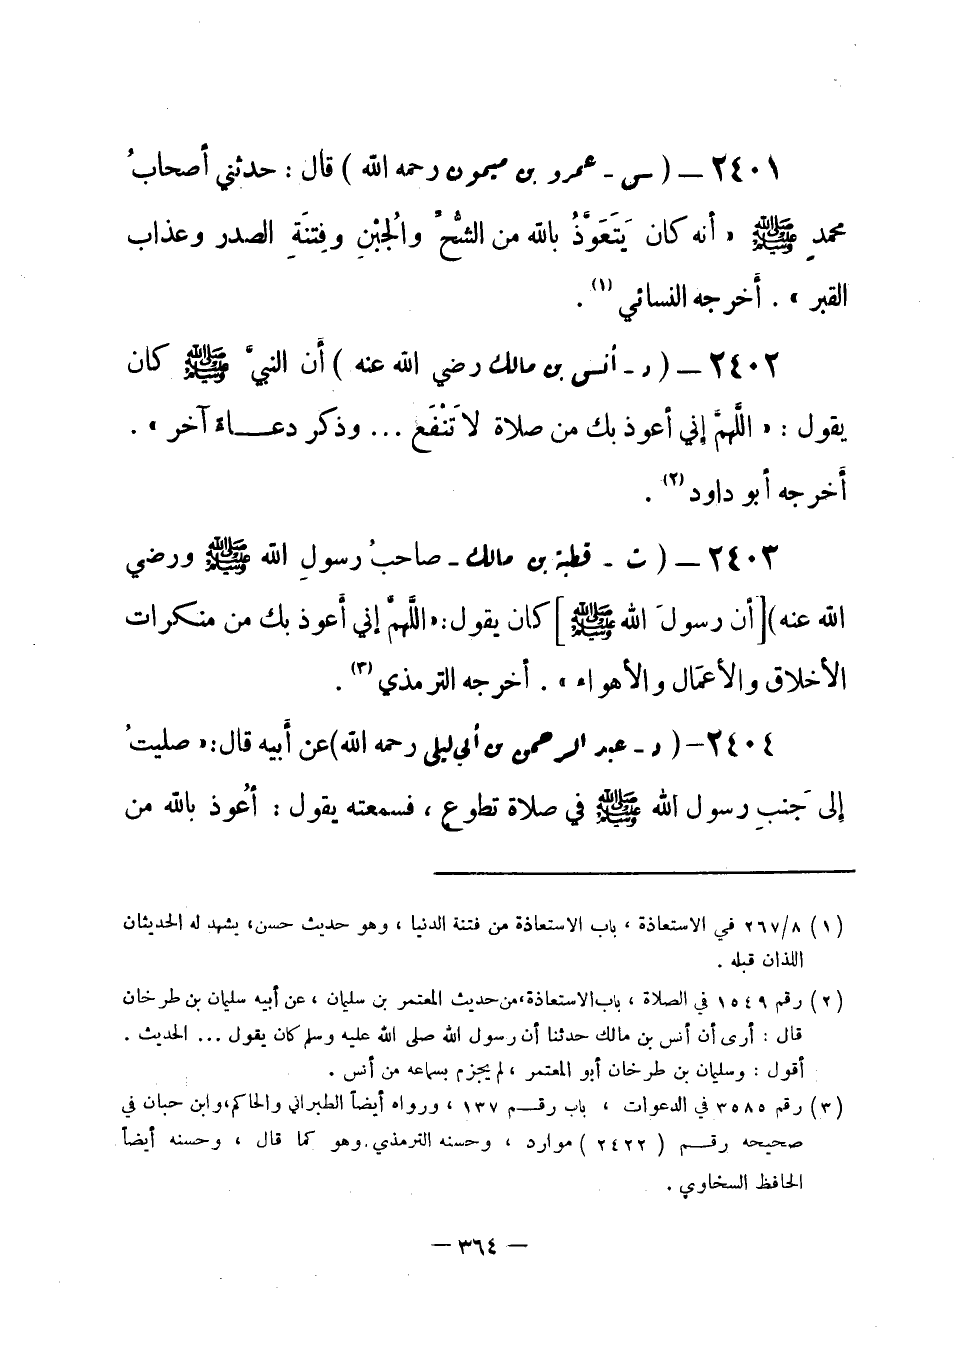 ٢٤٠١ — ( س - عمرو بن ميمون رحمه الله ) قال : حدثني أصحابُ
محمدٍ ﷺ « أنه كان يَتَعَوَّذُ بالله من الشُّحِّ والْجبْنِ وفِتنَةِ الصدر وعذاب
القبر » . أخرجه النسائي (١) .
٢٤٠٢ — ( د - أنس بن مالك رضي الله عنه ) أن النبيَّ ﷺ كان
يقول : « اللَّهمَّ إني أعوذ بك من صلاة لا تَنْفَع ... وذكر دعـــاءً آخر » .
أخرجه أبو داود (٢) .
٢٤٠٣ — ( ت - قطبة بن مالك - صاحبُ رسولِ الله ﷺ ورضي
الله عنه)[أن رسولَ الله ﷺ] كان يقول:«اللَّهمَّ إني أعوذ بك من منكرات
الأخلاق والأعمَال والأهواء » . أخرجه الترمذي (٣) .
٢٤٠٤ —( د - عبد الرحمن بن أبي ليلى رحمه الله)عن أبيه قال:« صليتُ
إلى جَنبِ رسول الله ﷺ في صلاة تطوع ، فسمعته يقول : أعُوذ بالله من
(١) ٢٦٧/٨ في الاستعاذة ، باب الاستعاذة من فتنة الدنيا ، وهو حديث حسن، يشهد له الحديثان
اللذان قبله .
(٢) رقم ١٥٤٩ في الصلاة ، باب الاستعاذة،من حديث المعتمر بن سليمان ، عن أبيه سليمان بن طرخان
قال : أرى أن أنس بن مالك حدثنا أن رسول الله صلى الله عليه وسلم كان يقول ... الحديث .
أقول : وسليمان بن طرخان أبو المعتمر ، لم يجزم بسماعه من أنس .
(٣) رقم ٣٥٨٥ في الدعوات ، باب رقـم ١٣٧ ، ورواه أيضاً الطبراني والحاكم،وابن حبان في
صحيحه رقـم ( ٢٤٢٢ ) موارد ، وحسنه الترمذي.وهو كما قال ، وحسنه أيضاً
الحافظ السخاوي .
— ٣٦٤ —